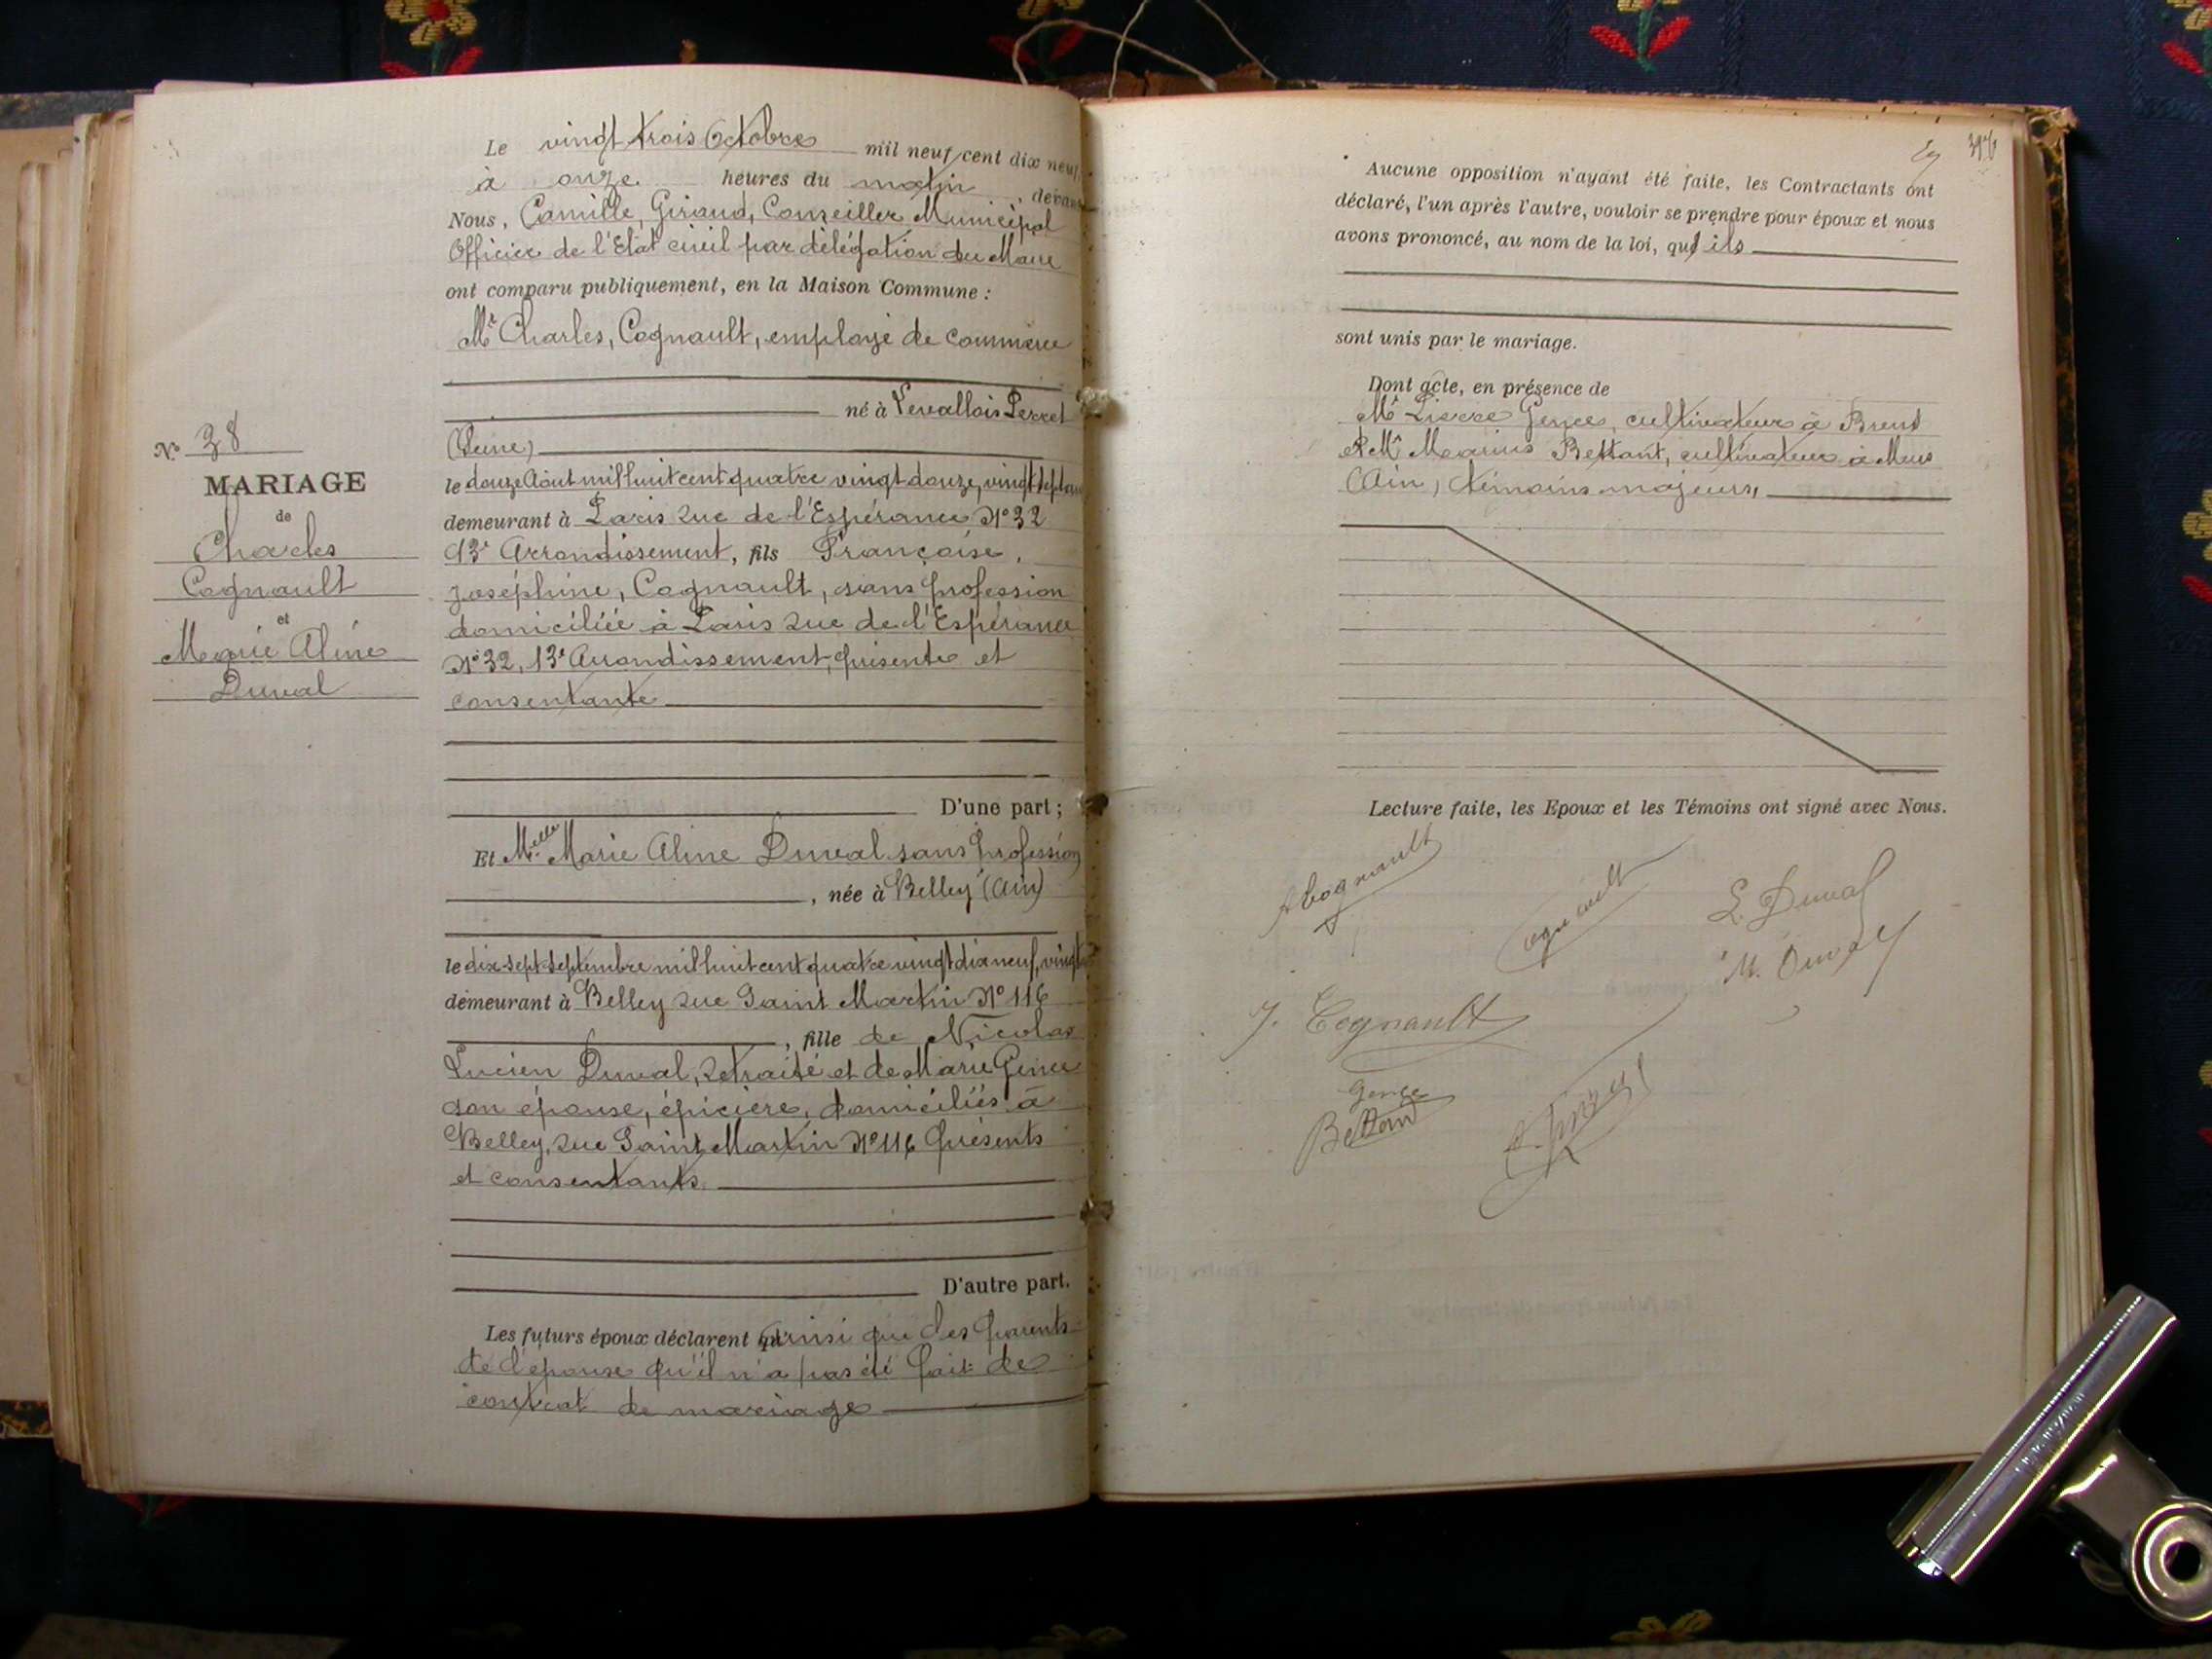 Le vingt trois Octobre mil neuf cent dix neuf,
à onze heures du matin, devant
Nous, Camille, Giraud, Conseiller Municipal
Officier de l'Etat civil par délégation du Maire
ont comparu publiquement, en la Maison Commune :
Mr Charles, Cognault, employé de commerce
né à Levallois Perret
(Seine)
le douze Août mil huit cent quatre vingt douze, vingt sept ans
demeurant à Paris rue de l'Espérance N° 32
13e Arrondissement, fils Françoise,
Joséphine, Cognault, sans profession
domiciliée à Paris rue de l'Espérance
N° 32, 13e Arrondissement, présente et
consentante
D'une part ;
Et Melle Marie Aline Duval sans profession
, née à Belley (Ain)
le dix sept septembre mil huit cent quatre vingt dix neuf, vingt
demeurant à Belley rue Saint Martin N° 116
, fille de Nicolas
Lucien Duval, retraité et de Marie Gence
son épouse, épicière, domiciliés à
Belley, rue Saint Martin N° 116 présents
et consentants.
D'autre part.
Les futurs époux déclarent ainsi que les parents
de l'épouse qu'il n'a pas été fait de
contrat de mariage
N° 38
MARIAGE
de
Charles
Cognault
et
Marie Aline
Duval
396
Aucune opposition n'ayant été faite, les Contractants ont
déclaré, l'un après l'autre, vouloir se prendre pour époux et nous
avons prononcé, au nom de la loi, qu'ils
sont unis par le mariage.
Dont acte, en présence de
Mr Pierre Gence, cultivateur à Brens
et Mr Marius Bettant, cultivateur à
(Ain) témoins majeurs,
Lecture faite, les Epoux et les Témoins ont signé avec Nous.
A Cognault
Cognault
L. Duval
M. Duval
J. Cognault
Gence
Bettant